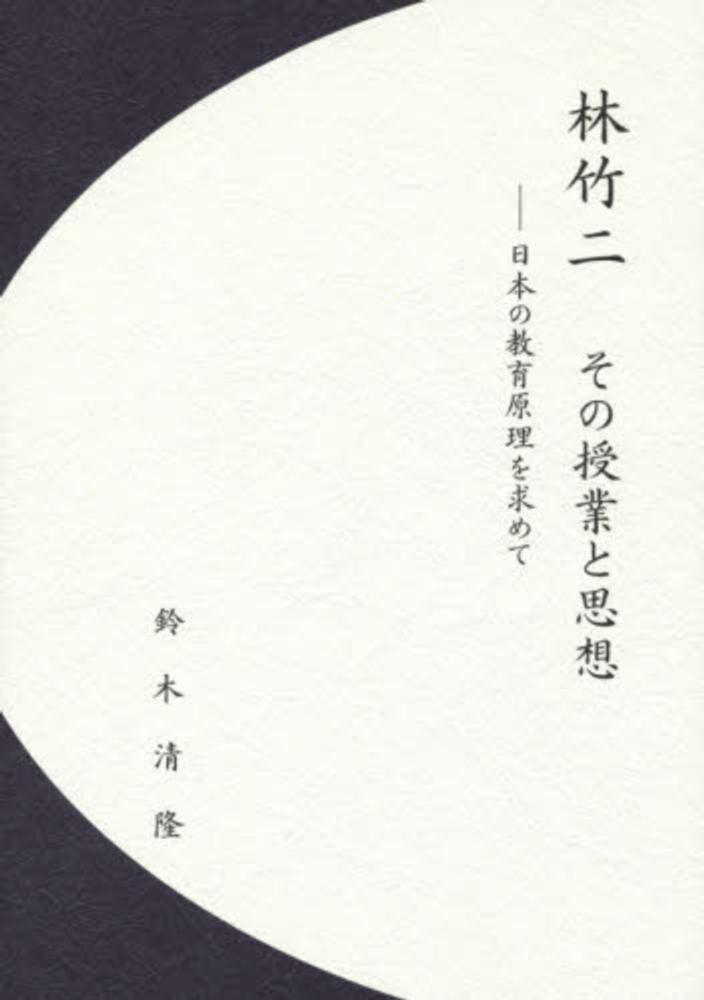 林竹二 その授業と思想
――日本の教育原理を求めて
鈴木清隆